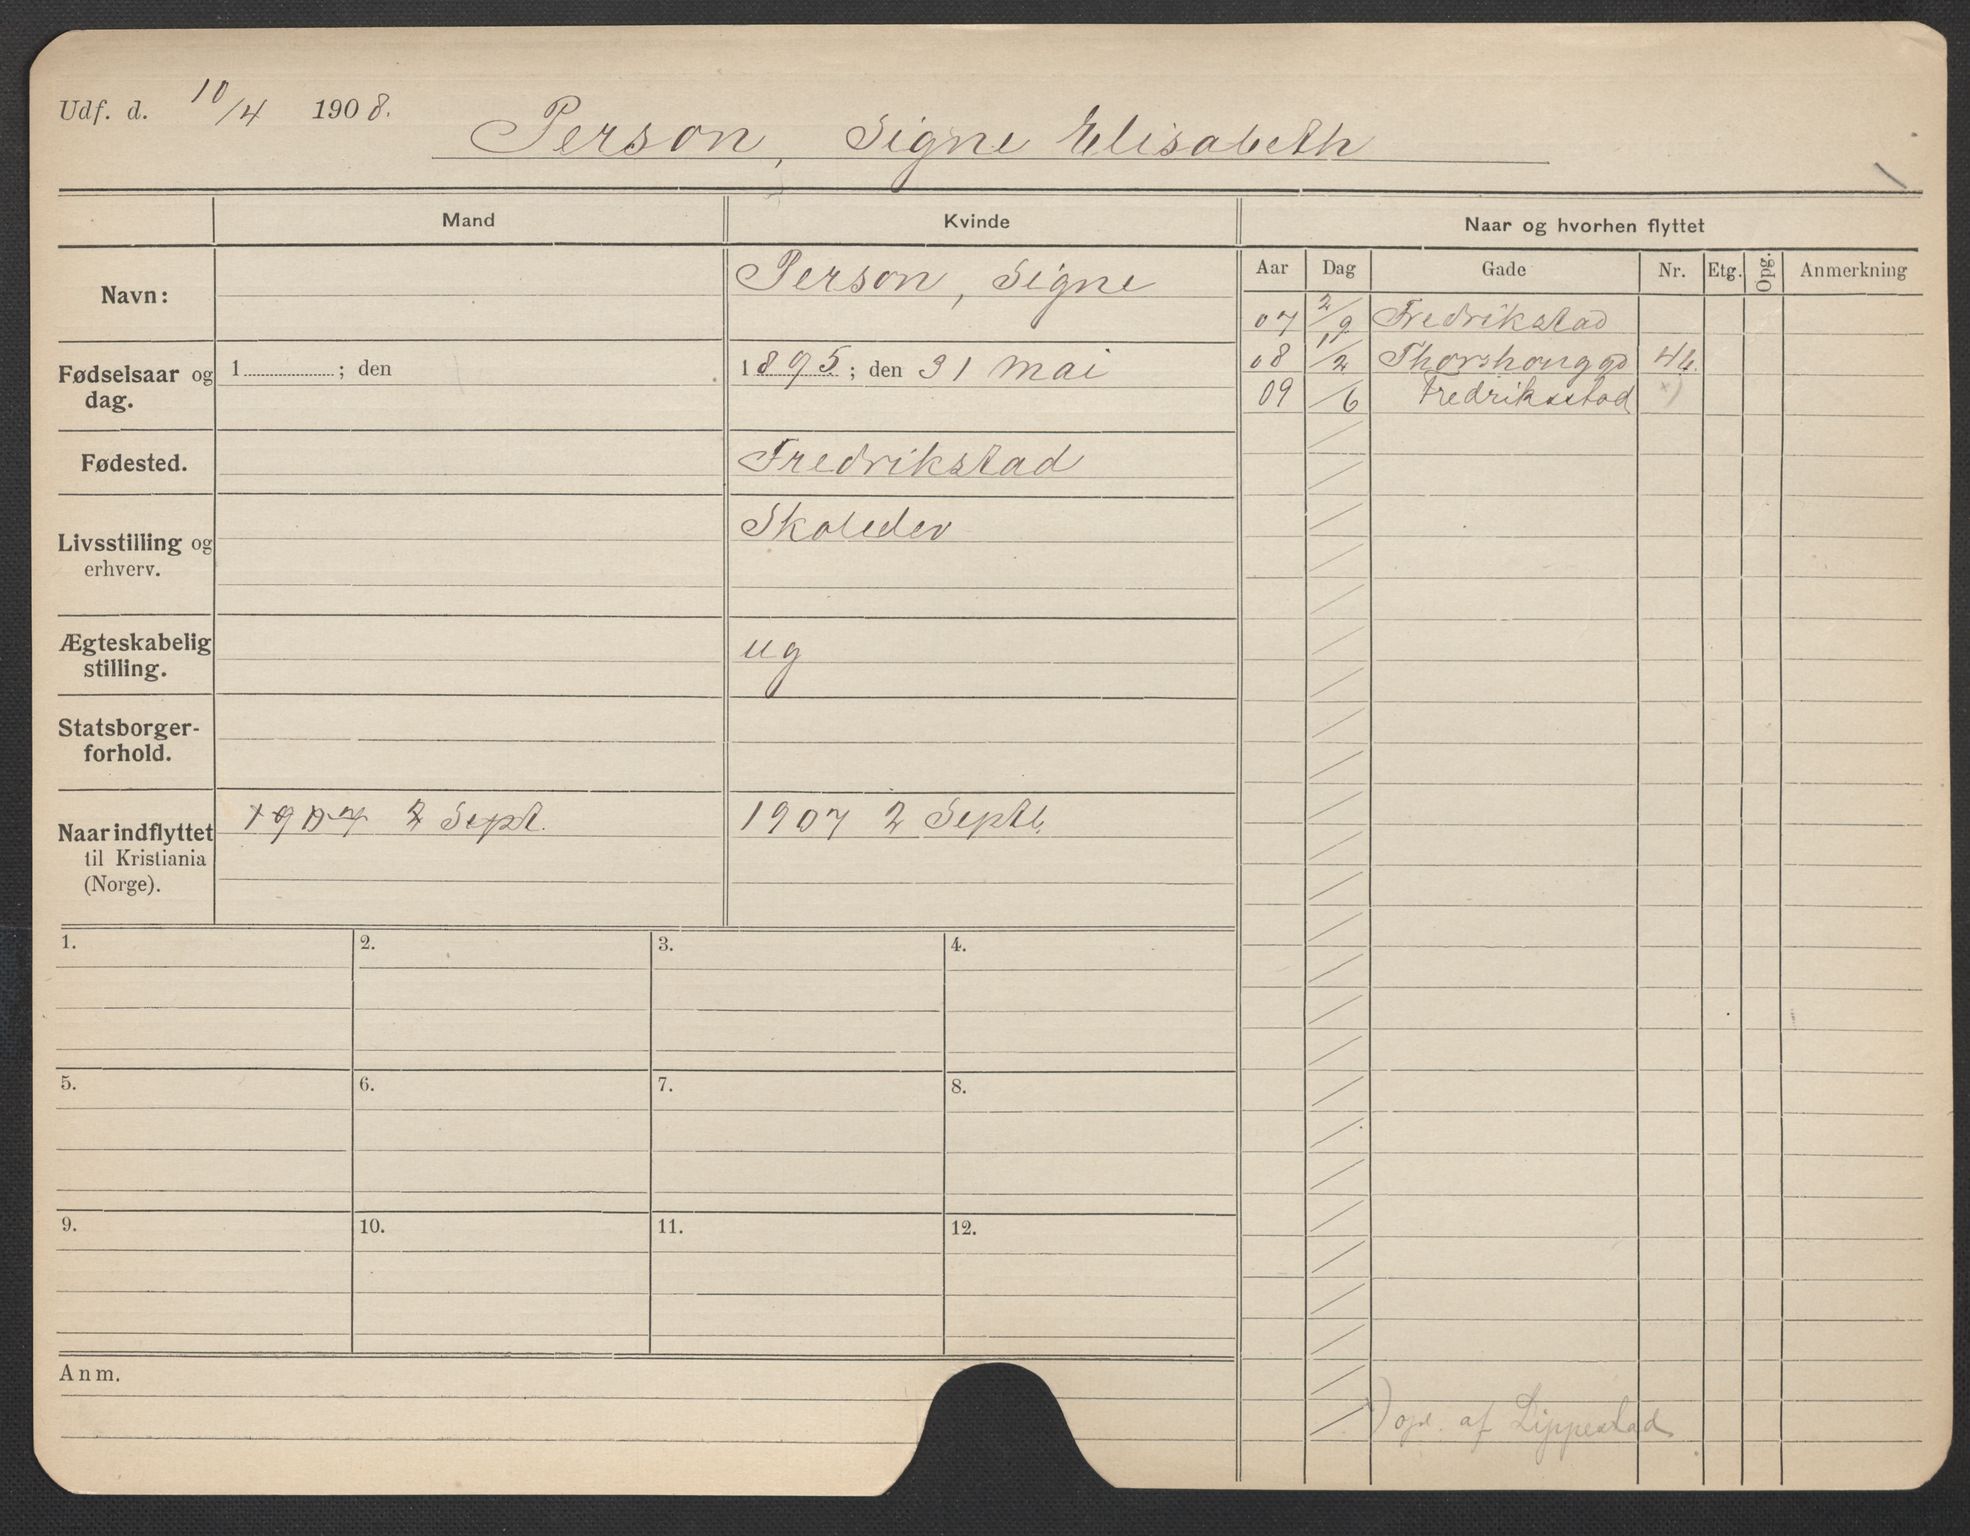 Udf. d. 10/4 1908.
Person, Signe Elisabeth
Mand
Kvinde
Naar og hvorhen flyttet
Navn:
Person, Signe
Fødselsaar og dag.
1 ; den
1895 ; den 31 Mai
Fødested.
Fredrikstad
Livsstilling og erhverv.
Skoleelev
Ægteskabelig stilling.
ug
Statsborger-
forhold.
Naar indflyttet
til Kristiania
(Norge).
1907 2 Sept.
1907 2 Septb.
Aar Dag Gade Nr. Etg. Opg. Anmerkning
07 2/9 Fredrikstad
08 1/2 44.
09 /6 Fredriksstad x)
1. 2. 3. 4.
5. 6. 7. 8.
9. 10. 11. 12.
Anm.
x) opl. af Lippestad